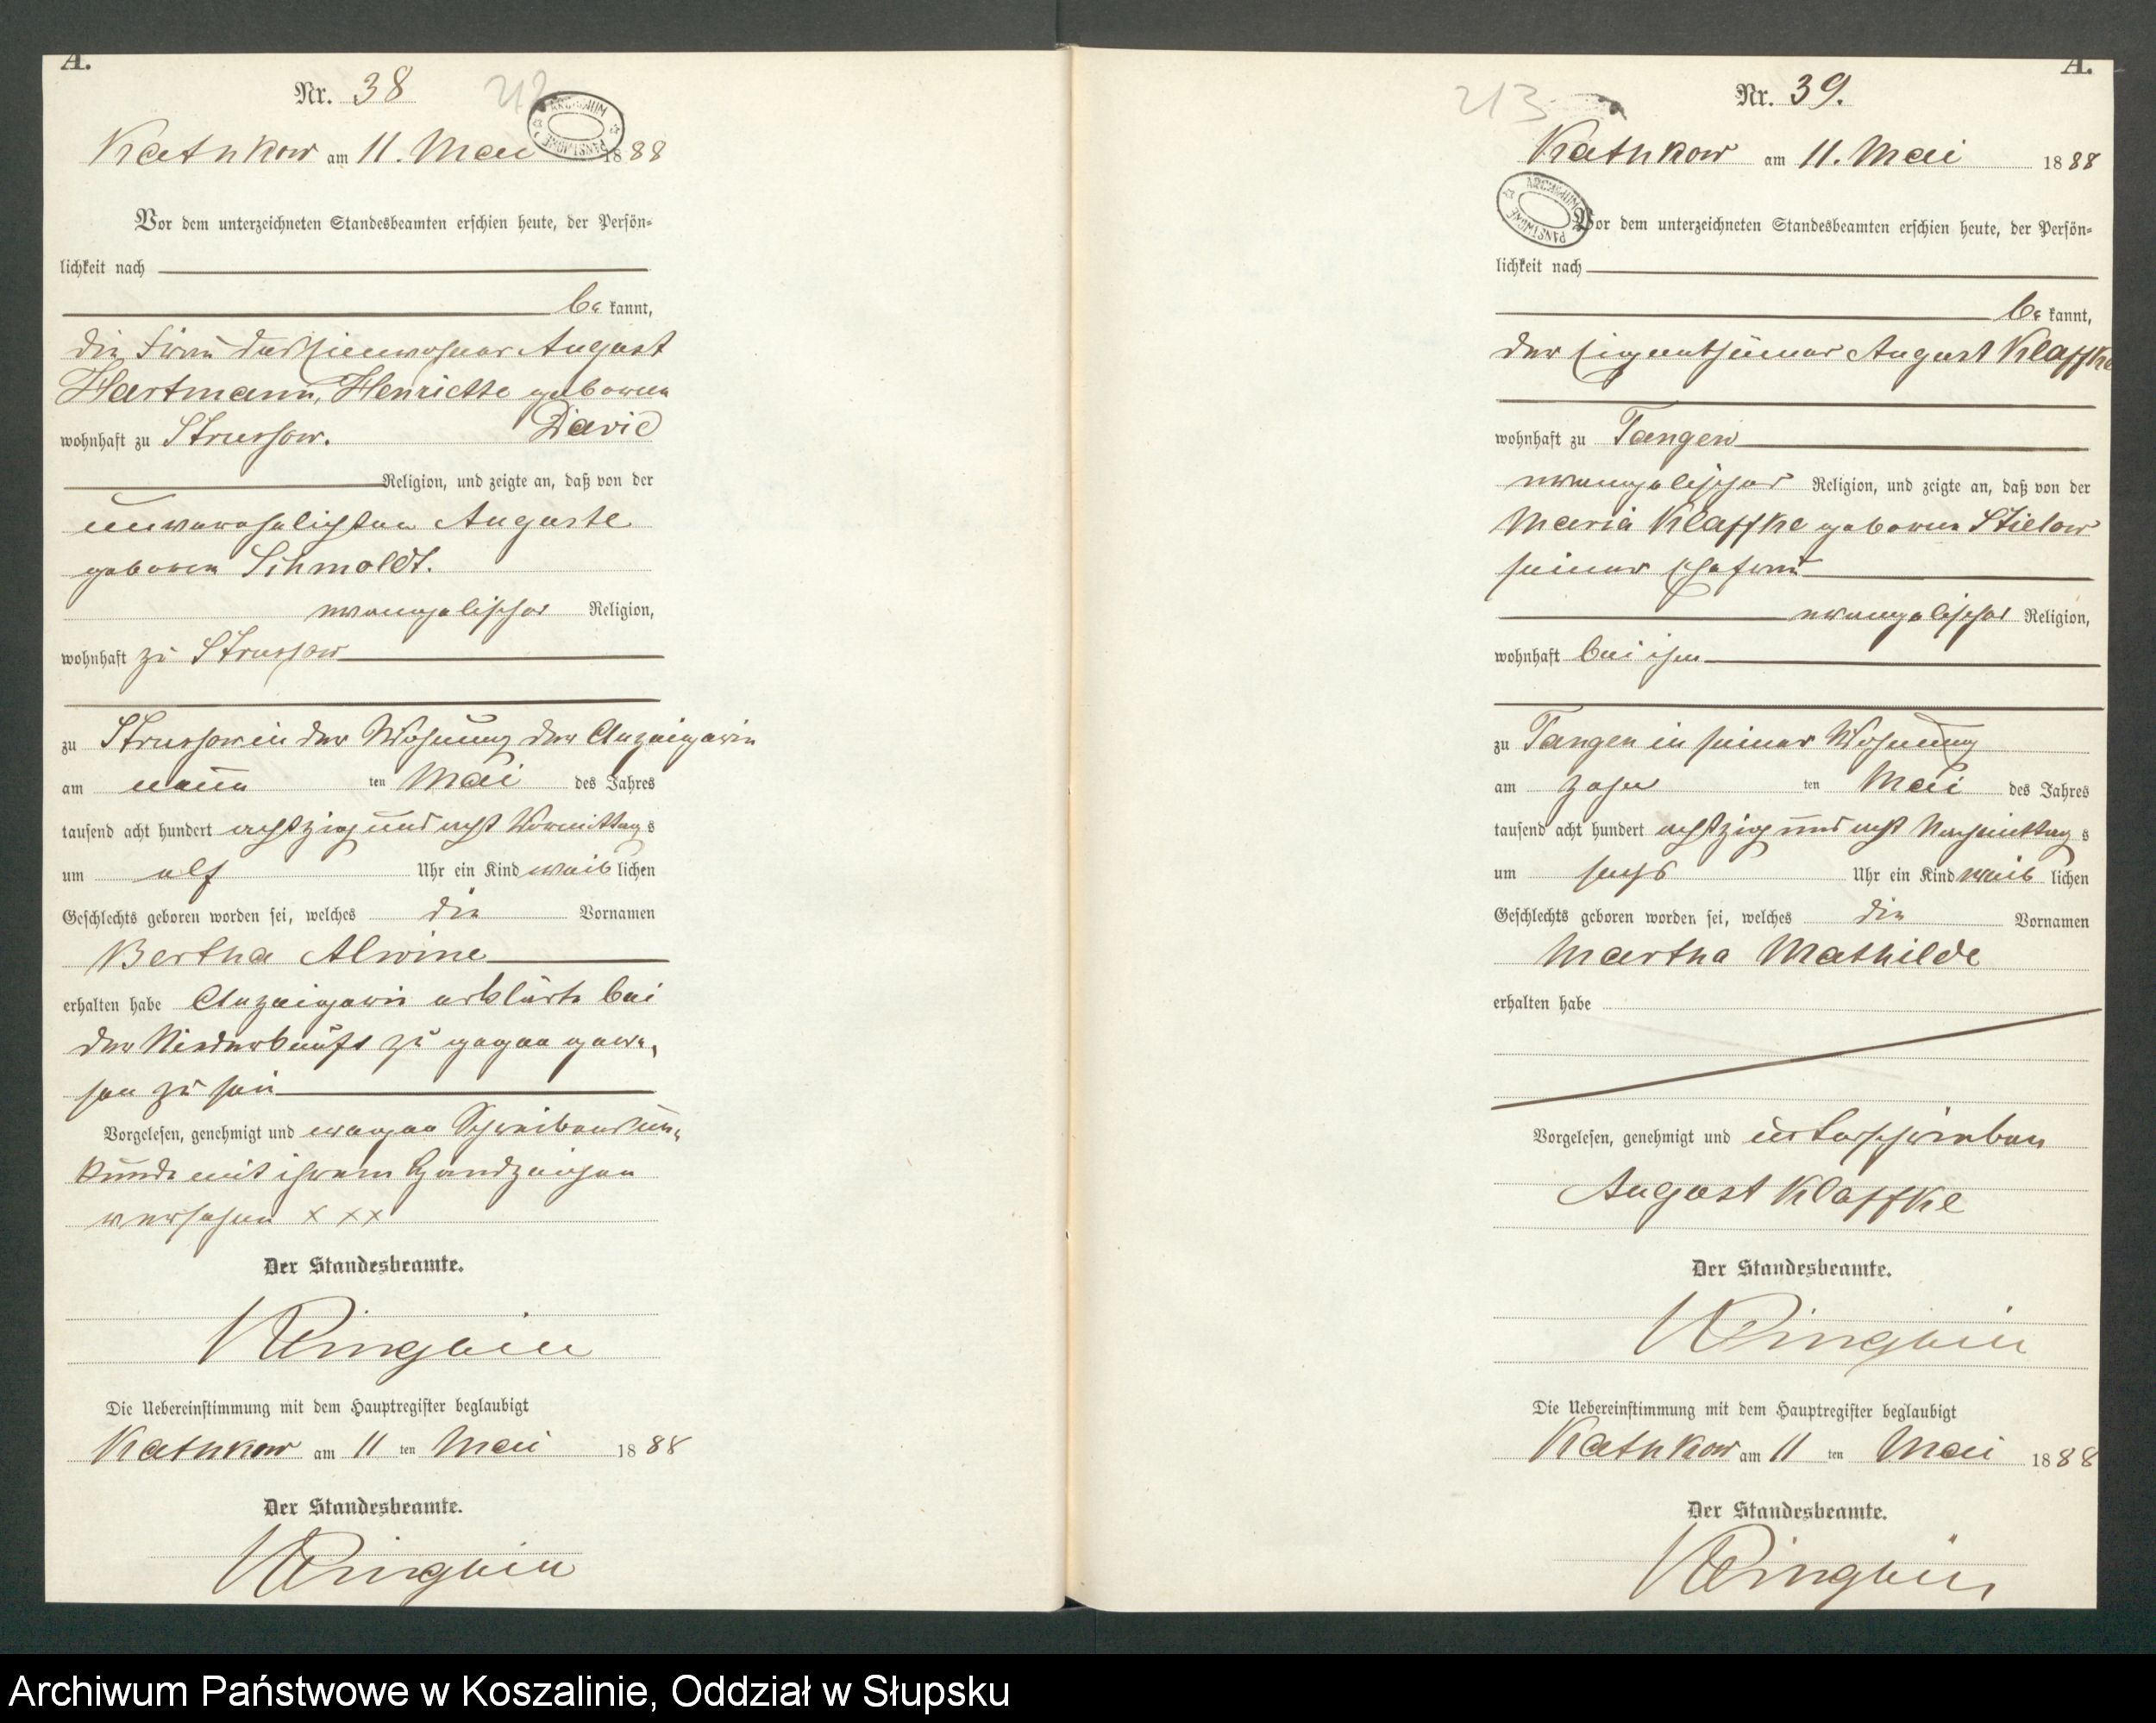 A.
Nr. 38
212
ARCHIWUM PAŃSTWOWE
Kathkow am 11. Mai 1888
Vor dem unterzeichneten Standesbeamten erschien heute, der Persön-
lichkeit nach
be kannt,
die Frau des Einwohner August
Hartmann, Henriette geboren
David
wohnhaft zu Strussow.
Religion, und zeigte an, daß von der
unverehelichten Auguste
geboren Schmoldt.
evangelischer Religion,
wohnhaft zu Strussow
zu Strussow in der Wohnung der Anzeigerin
am neun ten Mai des Jahres
tausend acht hundert achtzig und acht Vormittags
um elf Uhr ein Kind weiblichen
Geschlechts geboren worden sei, welches die Vornamen
Bertha Alwine
erhalten habe Anzeigerin erklärte bei
der Niederkunft zu gegen gewe-
sen zu sein
Vorgelesen, genehmigt und wegen Schreibensun-
kunde mit ihrem Handzeichen
versehen x x x
Der Standesbeamte.
Die Uebereinstimmung mit dem Hauptregister beglaubigt
Kathkow am 11 ten Mai 1888
Der Standesbeamte.
A.
Nr. 39.
213
ARCHIWUM PAŃSTWOWE
Kathkow am 11. Mai 1888
Vor dem unterzeichneten Standesbeamten erschien heute, der Persön-
lichkeit nach
be kannt,
der Eigenthümer August Klaffke
wohnhaft zu Tangen
evangelischer Religion, und zeigte an, daß von der
Maria Klaffke geboren Stielow
seiner Ehefrau
evangelischer Religion,
wohnhaft bei ihm
zu Tangen in seiner Wohnung
am zehn ten Mai des Jahres
tausend acht hundert achtzig und acht Nachmittags
um sechs Uhr ein Kind weiblichen
Geschlechts geboren worden sei, welches die Vornamen
Martha Mathilde
erhalten habe
Vorgelesen, genehmigt und unterschrieben
August Klaffke
Der Standesbeamte.
Die Uebereinstimmung mit dem Hauptregister beglaubigt
Kathkow am 11 ten Mai 1888
Der Standesbeamte.
Archiwum Państwowe w Koszalinie, Oddział w Słupsku